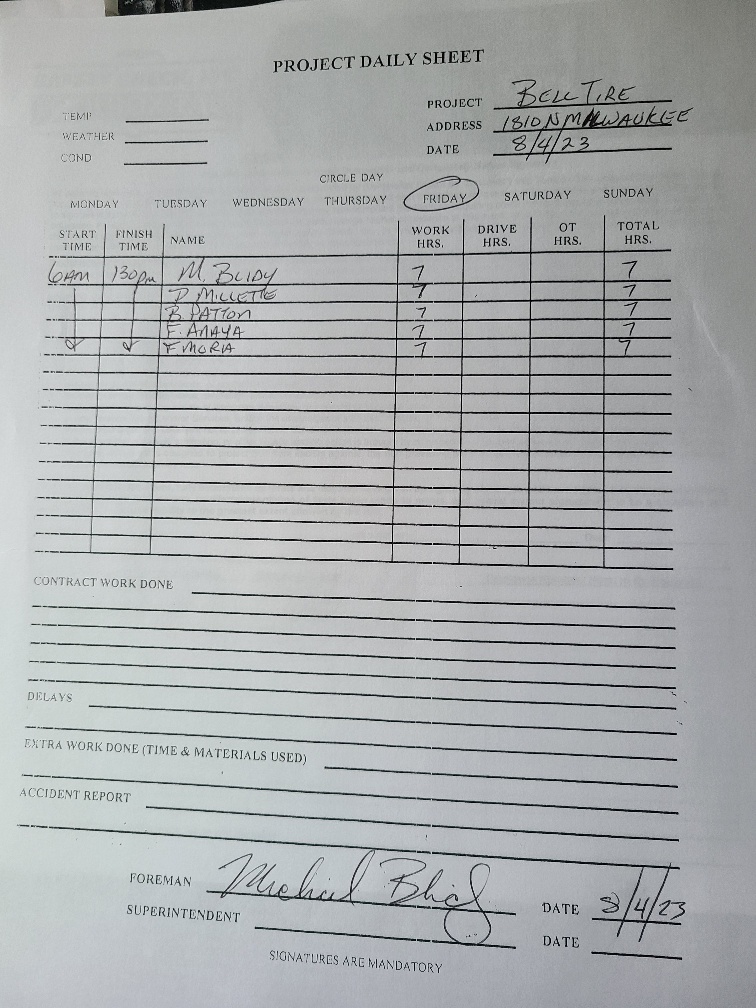 PROJECT DAILY SHEET
PROJECT BELL TIRE
TEMP
ADDRESS 1810 N MILWAUKEE
WEATHER
DATE 8/4/23
COND
CIRCLE DAY
MONDAY TUESDAY WEDNESDAY THURSDAY FRIDAY SATURDAY SUNDAY
START TIME FINISH TIME NAME WORK HRS. DRIVE HRS. OT HRS. TOTAL HRS.
6AM 130pm M. BLIDY 7 7
D. MILLETTE 7 7
B. PATTON 7 7
F. ANAYA 7 7
F. MORIA 7 7
CONTRACT WORK DONE
DELAYS
EXTRA WORK DONE (TIME & MATERIALS USED)
ACCIDENT REPORT
FOREMAN Michael DATE 8/4/23
SUPERINTENDENT DATE
SIGNATURES ARE MANDATORY